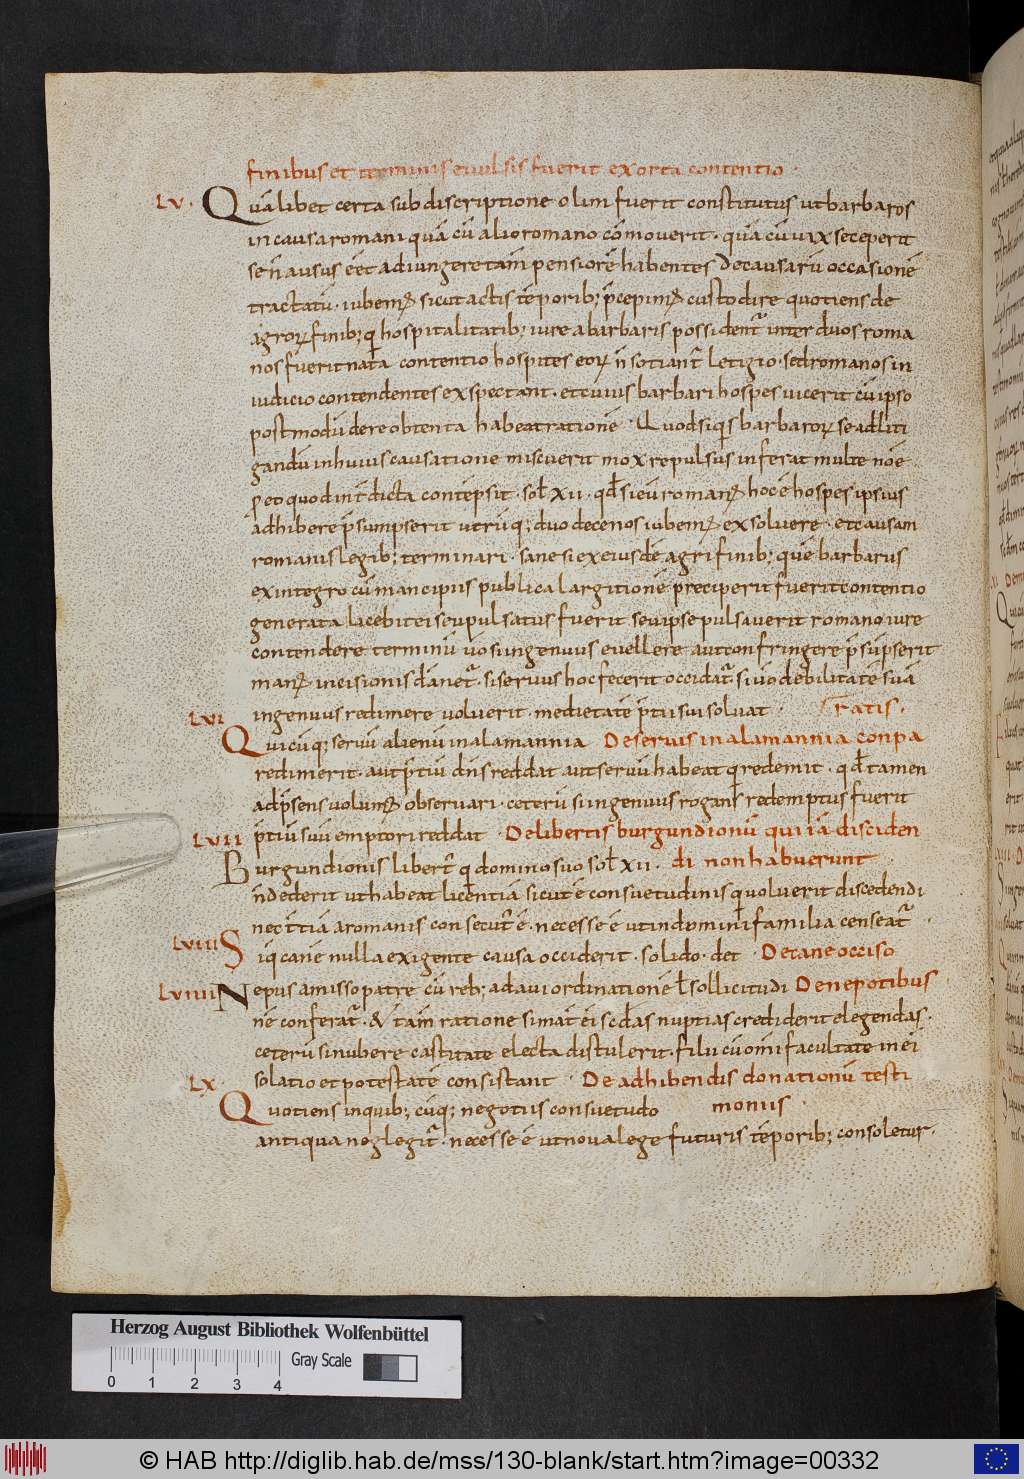 finibus et terminis evulsis fuerit exorta contentio ·
LV · Quālibet certa subdiscriptione olim fuerit constitutus ut barbaros
in causa romani quā cū alio romano cōmoverit · quā cū vix seceperit
se n̄ ausus eēt adiungere tam̄ pensiorē habentes De causarū occasionē
tractatū · iubem⁊ sicut actis tēporib; p̄cepim⁊ custodire quotiens de
agroꝝ finib; qi hospitalitatib; iure a barbaris possident̄ inter duos roma
nos fuerit nata contentio hospites eoꝝ n̄ sotiant̄ letigio · sed romanos in
iudicio contendentes exspectant · et cuius barbari hospes vicerit cū ipso
postmodū de re obtenta habeat rationē · Quod siqi s barbaroꝝ se ad liti
gandū in huius causatione miscuerit mox repulsus inferat multe nōe
ꝑ eo quod int̄dicta contēpsit · sol̄ xii · qd̄ si eū roman⁊ hoc ē hospes ipsius
adhibere p̄sumpserit utrūq; duodecenos iubem⁊ exsolvere · et causam
romanis legib; terminari · sane si ex eiusdē agri finib; quē barbarus
ex integro cū mancipiis publica largitionē preciperit fuerit contentio
generata licebit ei seu pulsatus fuerit seu ipse pulsaverit romano iure
contendere terminū v̄o si ingenuus evellere aut confringere p̄sūpserit
man⁊ incisionis dānet̄ · si servus hoc fecerit occidat̄ · si v̄o debilitatē suā
ingenuus redimere voluerit · medietatē p̄tii sui solvat · tratis ·
LVI Quicūq; servū alienū in alamannia De servis in alamannia conpa
redimerit · aut p̄tiū dn̄s reddat aut servū habeat qi redemit · qd̄ tamen
ad p̄sens volum⁊ observari · ceterū si ingenuus rogans redemptus fuerit
LVII p̄tiū suū emptori reddat · De libertis burgundionū qui iā disciden
Burgundionis libert̄ qi domino suo sol̄ xii · di non habuerunt
n̄ dederit ut habeat licentiā sicut ē consuetudinis quo voluerit discedendi
nec t̄tiā a romanis consecut̄ ē · necesse ē ut in domini familia censeat̄ ·
LVIII Siqi canē nulla exigente causa occiderit · solido · det · De cane occiso
LVIIII Nepus amisso patre cū reb; ad avi ordinationē l̄ sollicitudi De nepotibus
nē conferat̄ · & tam̄ rationē si mat̄ ei sc̄das nuptias crediderit elegendas ·
ceterū si nubere castitate electa distulerit · filii cū omī facultate in ei
solatio et potestatē consistant · De adhibendis donationū testi
LX Quotiens in quib; cūq; negotiis consuetudo moniis ·
antiqua neglegit̄ · necesse ē ut nova lege futuris tēporib; consoletur ·
Herzog August Bibliothek Wolfenbüttel
Gray Scale
0 1 2 3 4
© HAB http://diglib.hab.de/mss/130-blank/start.htm?image=00332